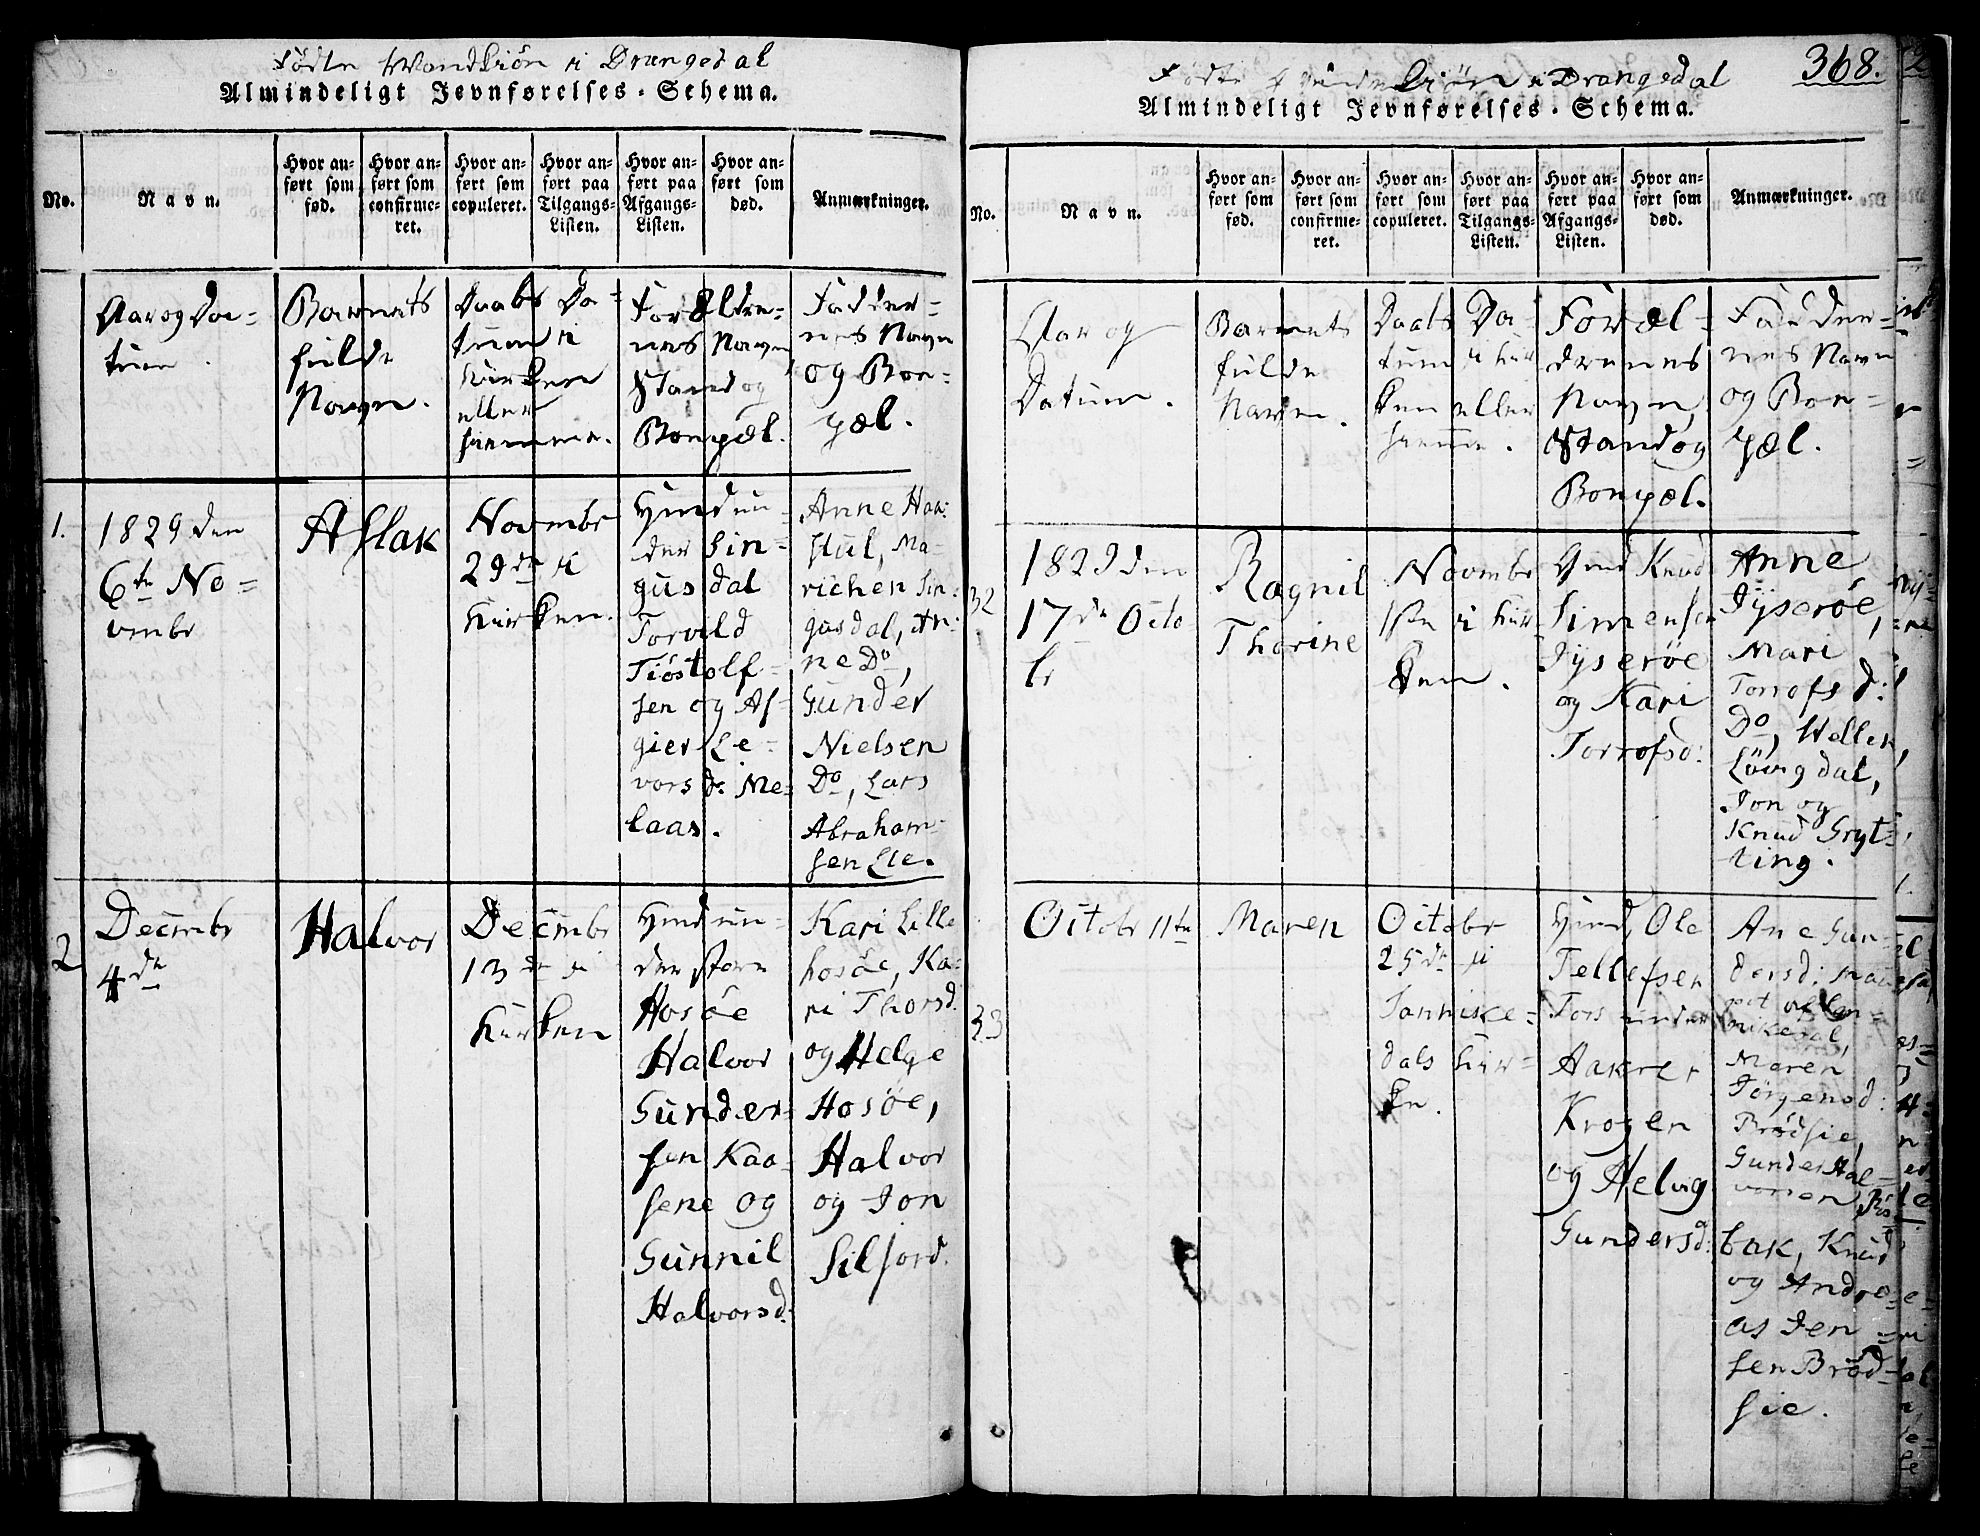 Fødte Mandkiön i Drangedal
Almindeligt Jevnførelses-Schema.
No.
Navn.
Hvor an-
ført som
fød.
Hvor an-
ført som
confirme-
ret.
Hvor an-
ført som
copuleret.
Hvor an-
ført paa
Tilgangs-
Listen.
Hvor an-
ført paa
Afgangs-
Listen.
Hvor an-
ført som
død.
Anmærkninger.
Aar og Da=
tum.
Barnets
fulde
Navn.
Daabs Da=
tum i
Kirken
eller
hiemme.
Forældre=
nes Navn
Stand og
Bopæl.
Fadder=
nes Navn
og Bo=
pæl.
1.
1829 den
6te No=
vmbr
Aslak
Novmbr
29de i
Kirken.
Gmd un=
der Sin=
gusdal
Torvild
Tiöstolf=
sen og As=
gier Le=
vorsd. Me=
laas.
Anne Haa:
stul, Ma=
richen Sin:
gusdal, An:
ne Do,
Gunder
Nielsen
Do, Lars
Abraham
sen Lie.
2
Decmbr
4de
Halvor
Decmbr
13de i
Kirken
Gmd un=
der store
Hosöe
Halvor
Gunder=
sen Kaa=
sene og
Gunnil
Halvorsd.
Kari Lille
hosöe, Ka=
ri Thorsd.
og Helge
Hosöe,
Halvor
og Jon
Siljord.
368.
Fødte Qvindekiön i Drangedal
Almindeligt Jevnførelses-Schema.
No.
Navn.
Hvor an-
ført som
fød.
Hvor an-
ført som
confirme-
ret.
Hvor an-
ført som
copuleret.
Hvor an-
ført paa
Tilgangs-
Listen.
Hvor an-
ført paa
Afgangs-
Listen.
Hvor an-
ført som
død.
Anmærkninger.
Aar og
Datum.
Barnets
fulde
Navn.
Daabs Da=
tum i Kir
ken eller
hiemme.
Foræl=
drenes
Navn,
Stand og
Bopæl.
Fadder=
nes Navn
og Bo=
pæl.
32
1829 den
17de Octo
br
Ragnil
Thorine
Novmbr
1ste i Kir
ken.
Gmd Knud
Simensen
Jyseröe
og Kari
Torrofsd:
Anne
Jyseröe,
Mari
Torrofsd:
Do, Hellek
Lövigdal,
Jon og
Knud Gryt=
ting.
33
Octobr 11te
Maren
Octobr
25de i
Tannike=
dals Kir=
ke.
Gmd, Ole
Tellefsen
Fors under
Aakre
Krogen
og Helvig
Gundersd:
Ane Gun=
dersd:
Maren
Jörgensd:
Brödsie,
Gunder Hal=
vorsen
bak, Knud
og Andre=
as Jen=
sen Bröd=
sie.